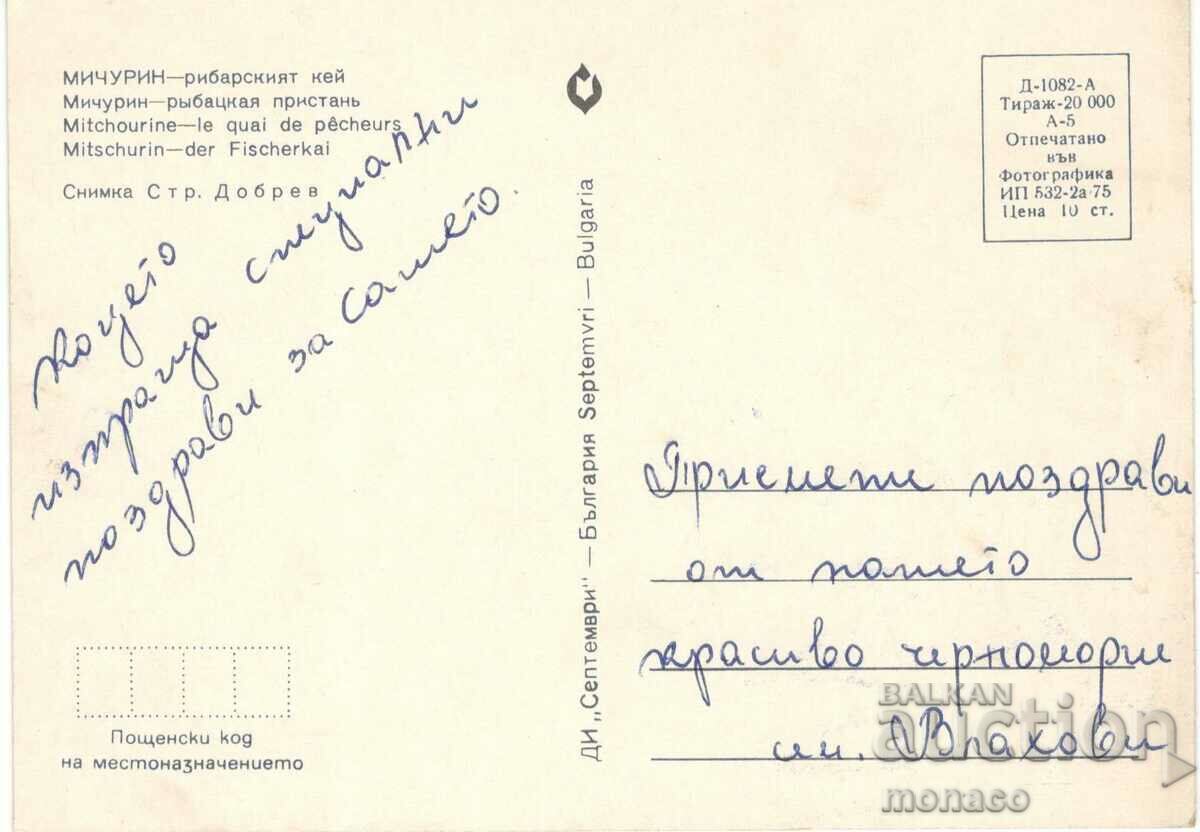 МИЧУРИН—рибарският кей
Мичурин—рыбацкая пристань
Mitchourine—le quai de pêcheurs
Mitschurin—der Fischerkai
Снимка Стр. Добрев
Коцето
изпраща специални
поздрави за Сашето.
Пощенски код
на местоназначението
ДИ „Септември" — България Septemvri — Bulgaria
Д-1082-А
Тираж-20 000
А-5
Отпечатано
във
Фотографика
ИП 532-2а 75
Цена 10 ст.
Приемети поздрави
от нашето
красиво черноморие
сем. Влахови
BALKAN
auction
monaco